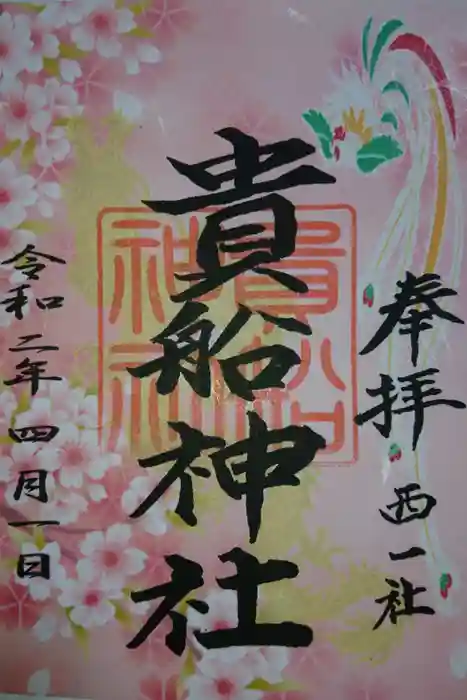 奉拝
西一社
貴船神社
貴船
神社
令和二年四月一日